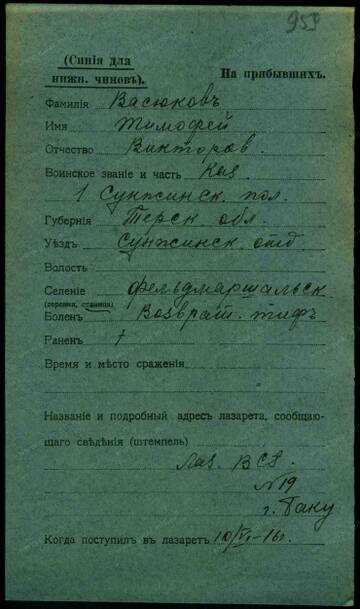 959
(Синія для
нижн. чиновъ).
На прибывшихъ.
Фамилія Васюковъ
Имя Тимофей
Отчество Викторов.
Воинское званіе и часть Каз.
1 Сунжинск. пол.
Губернія Терск. обл.
Уѣздъ Сунжинск. отд
Волость
Селеніе Фельдмаршальск.
(деревня, станица)
Боленъ Возврат. тифъ
Раненъ
Время и мѣсто сраженія
Названіе и подробный адресъ лазарета, сообщаю-
щаго свѣдѣнія (штемпель)
Лаз. В С З.
№ 19
г. Баку
Когда поступилъ въ лазаретъ 10/VI-16г.